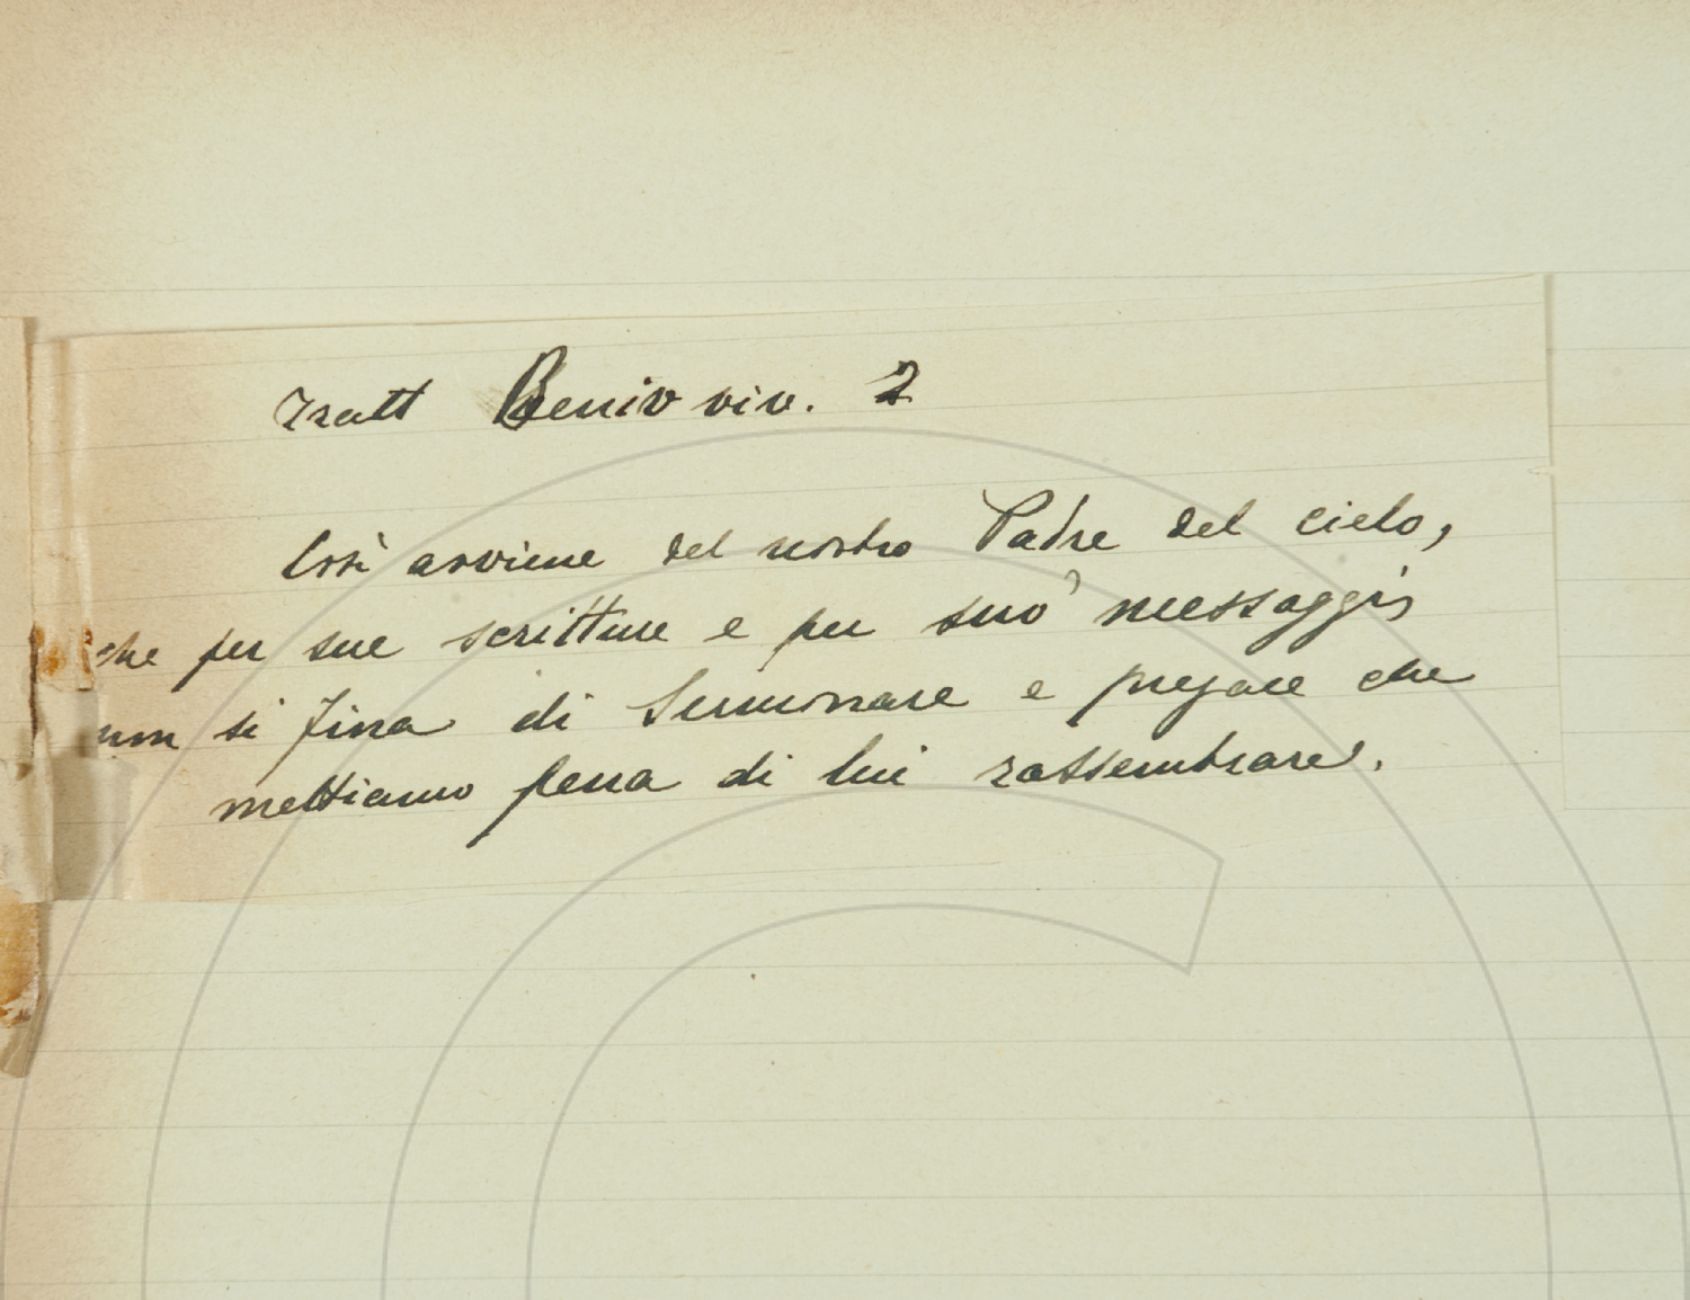 Tratt Beniv viv. 2
Così avviene del nostro Padre del cielo,
che per sue scritture e per suo' messaggis
non si fina di sermonare e pregare che
mettiamo pena di lui rassembrare.